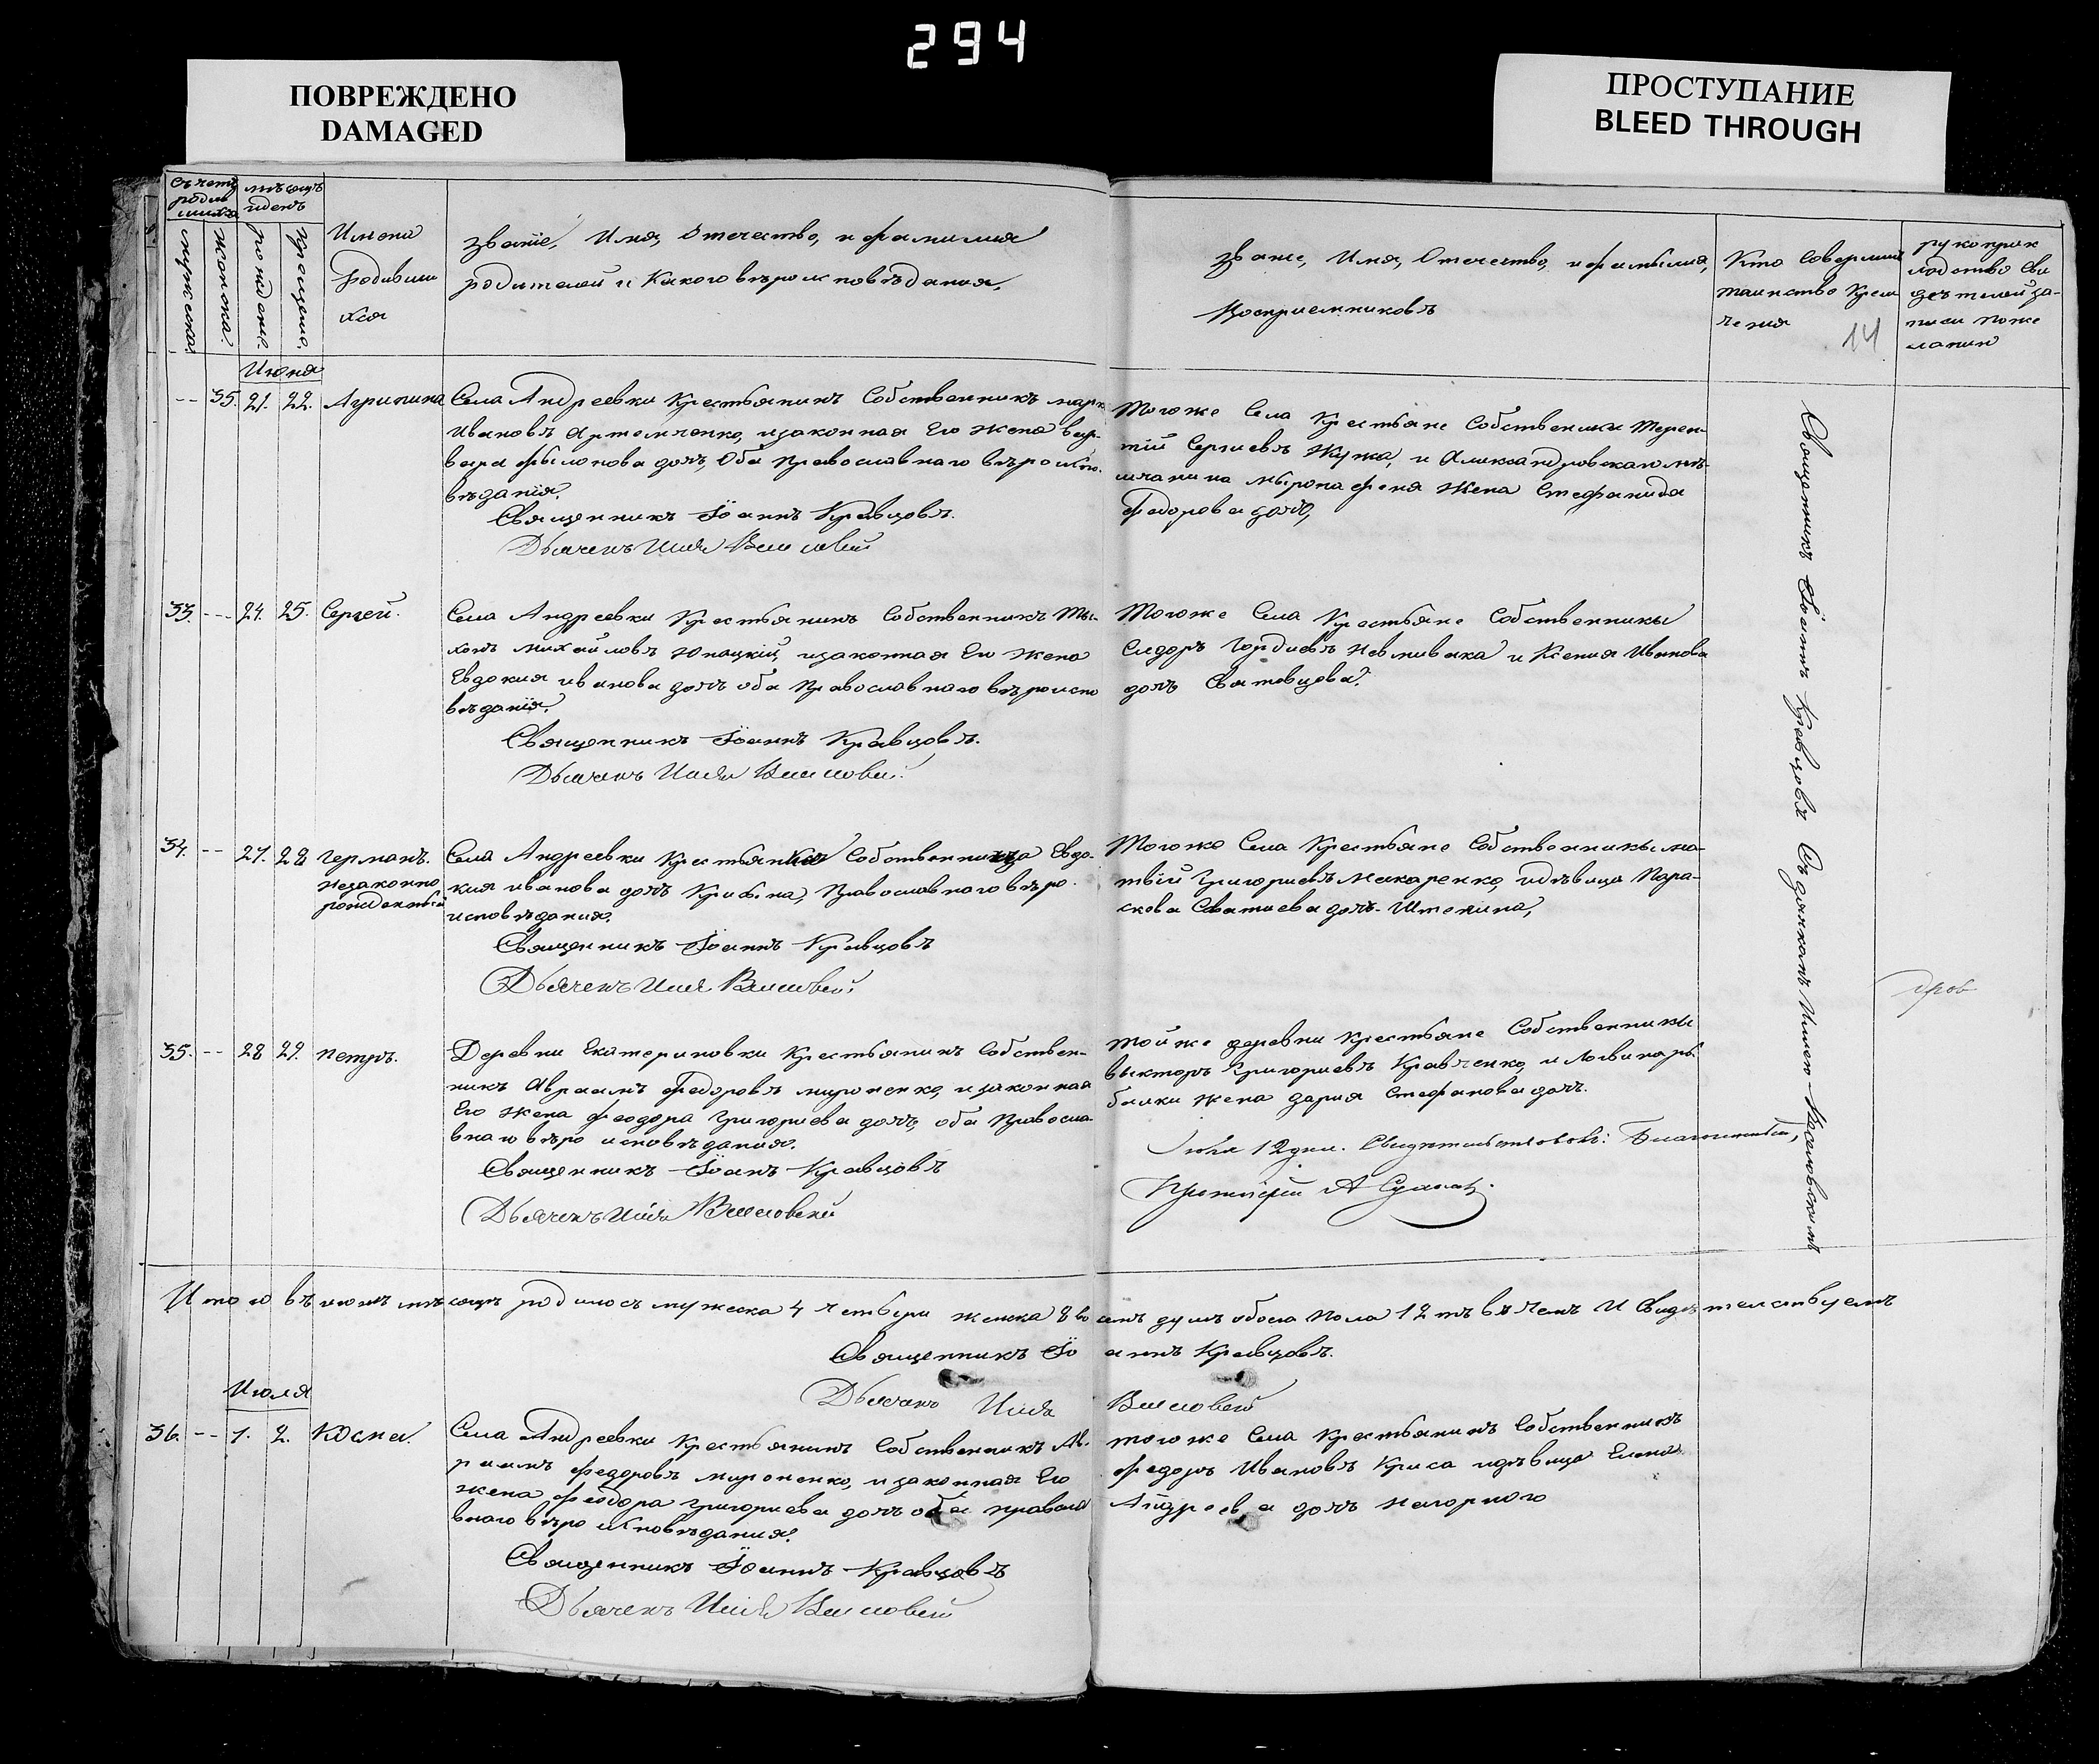 294
ПОВРЕЖДЕНО
DAMAGED
ПРОСТУПАНИЕ
BLEED THROUGH
Счетъ
родив
шихся
мѣсяцъ
иденъ
мужеска.
женска.
рождение.
крещение.
Имена
родивши
хся
звание, Имя, Отечество, и фамилия
родителей и Какого вѣроисповѣдания,
звание, Имя, Отечество, и фамылия,
Восприемниковъ
Кто Совершилъ
таинство Крещ
чения
14
рукоприк
ладство сви
дѣтелей за-
писи поже
лании
Июня
-- 35. 21. 22. Агрипина
Села Андреевки Крестьянинъ Собственникъ марк
Ивановъ Артемченко, изаконная Его жена вар-
вара фылипова дочъ, Оба Православнаго вѣроиспо
вѣданія,
Священникъ Іоаннъ Кравцовъ.
Дьячекъ Илія
Тогоже Села Крестьяне Собственники Терен-
тій Сергиевъ Жужа, и Александровскаго мѣ-
щанина мырона феня Жена Стефанида
Федорова дочъ,
33. -- 24. 25. Сергей.
Села Андреевки Крестьянинъ Собственникъ Ты-
хонъ михайловъ Юнацкій, изаконная Его Жена
Евдокия иванова дочъ оба Православнаго вѣроиспо
вѣданія,
Священникъ Іоаннъ Кравцовъ.
Дьячекъ Илія
Тогоже Села Крестьяне Собственникы
Сидоръ Гордиевъ Невмивака и Ксения Иванова
дочъ Сватовцова.
34. -- 27. 28 Германъ.
незаконно
рожденный
Села Андреевки Крестьянка Собственница Евдо-
кия иванова дочъ Православнаго вѣро-
исповѣдания,
Священникъ Іоаннъ Кравцовъ
Дьячекъ Илія
Тогоже Села Крестьяне Собственникы ма-
твій Григориевъ Макаренко, идѣвица Пара-
скова дочъ- Штепина,
35. -- 28 29. Петръ.
Деревни Екатериновки Крестьянинъ Собствен-
никъ Авраамъ Федоровъ мироненко, изаконная
Его Жена феодора Григориева дочъ, оба Правосла-
внаго вѣро исповѣдания.
Священникъ Іоанъ Кравцовъ
Дьячекъ Илія
Тойже деревни Крестьяне Собственники
выкторъ Григориевъ Кравченко, и
жена дария Стефанова дочъ.
Іюля 12 дня. Свидетельствовалъ: Благочинный,
Протоіерей А
Священникъ Іоаннъ Кравцовъ Съ дячкомъ Илиею
пров
Итого въ июнѣ мѣсяцѣ родилось мужеска 4 четыри женска 8 восемъ душъ обоего пола 12 тъ въ чемъ И Свидѣтелствуемъ
Священникъ Іоаннъ Кравцовъ.
Дьячекъ Илія
Июля
36. -- 1. 2. Косма.
Села Андреевки Крестьянинъ Собственникъ Ав-
раамъ федоровъ мироненко, изаконная Его
жена феодора Григориева дочъ оба правосла
внаго вѣро исповѣдания.
Священникъ Іоаннъ Кравцовъ
Дьячекъ Илія
тогоже Села Крестьянинъ Собственникъ
федоръ Ивановъ Криса идѣвица Елена
Андреева дочъ Нагорного